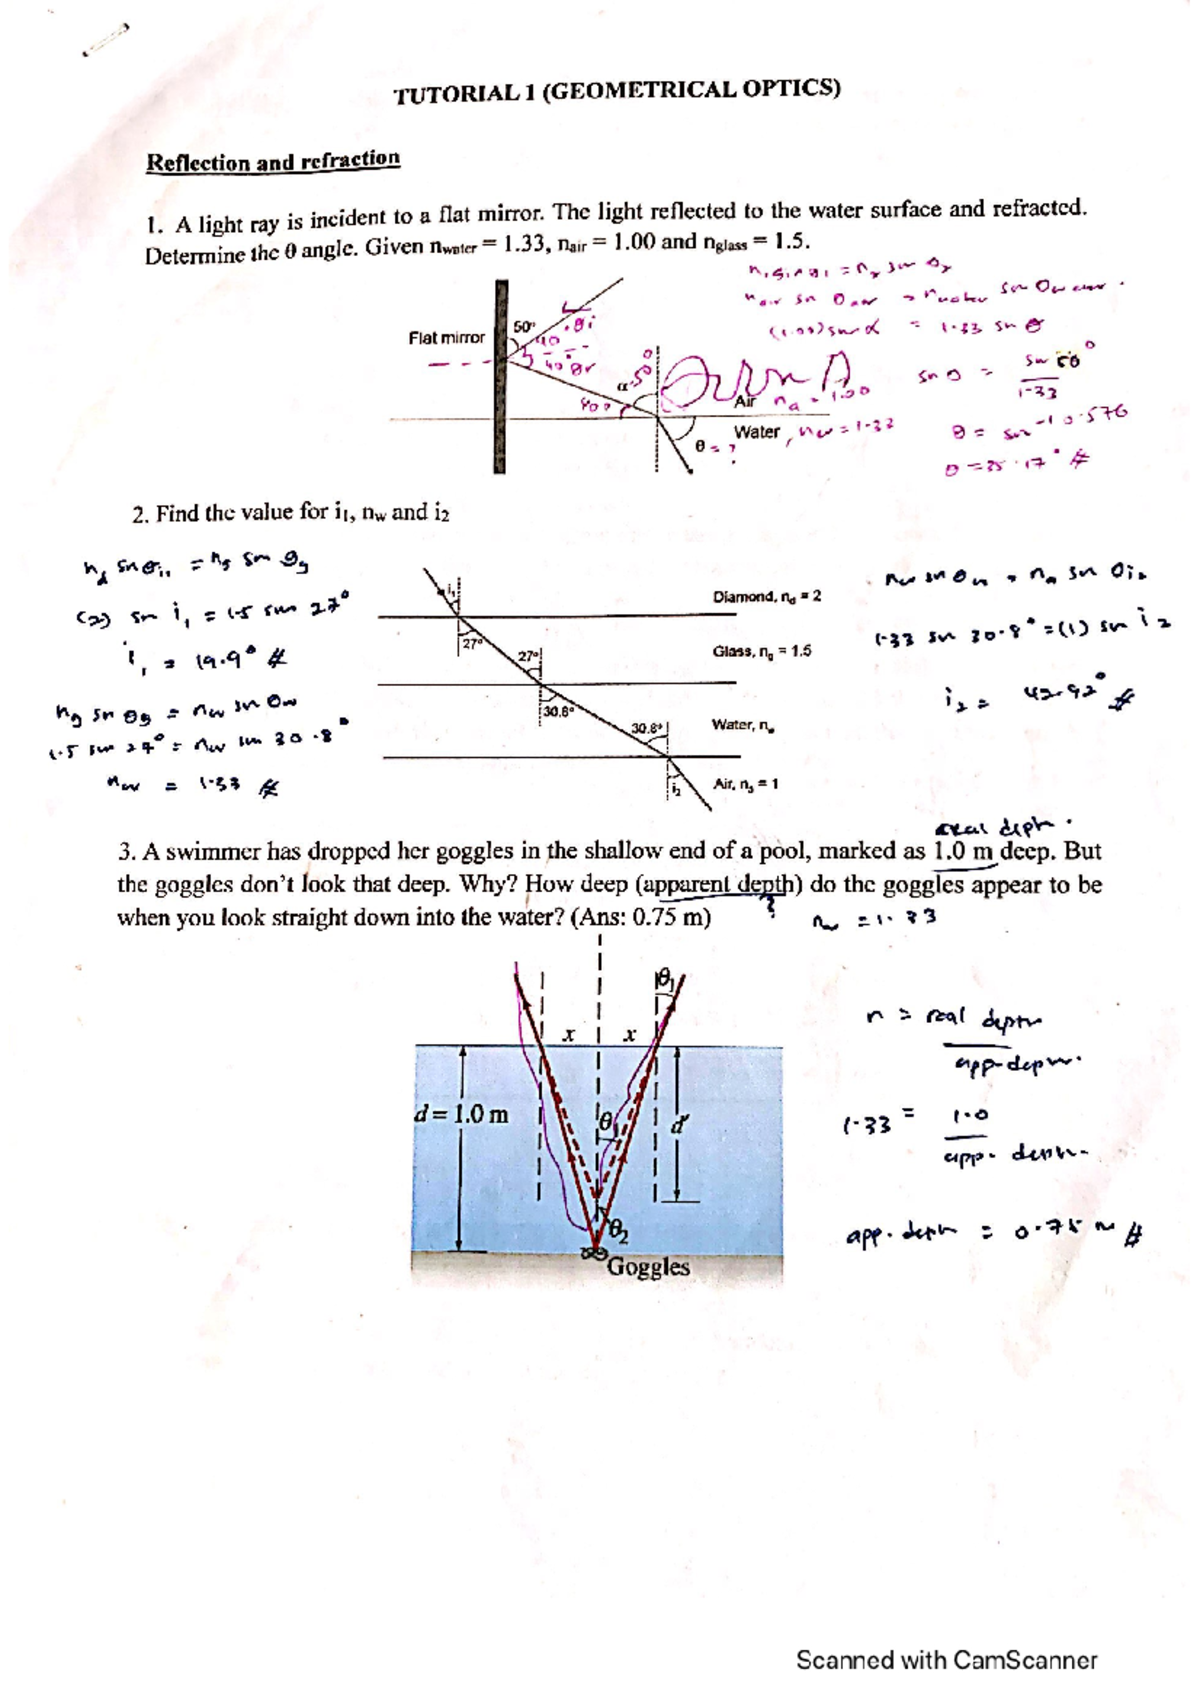 TUTORIAL 1 (GEOMETRICAL OPTICS)
Reflection and refraction
1. A light ray is incident to a flat mirror. The light reflected to the water surface and refracted.
Determine the θ angle. Given nwater = 1.33, nair = 1.00 and nglass = 1.5.
n1 sin θ1 = n2 sin θ2
nair sin θair = nwater sin θwater
(1.00) sin α = 1.33 sin θ
sin θ = sin 50°
1.33
θ = sin-1 0.576
θ = 35.17° #
Flat mirror
50°
θi
40
40° θr
α 50°
40°
Air na = 1.00
Water, nw = 1.33
θ = ?
2. Find the value for i1, nw and i2
nd sin θi1 = ng sin θg
(2) sin i1 = 1.5 sin 27°
i1 = 19.9° #
ng sin θg = nw sin θw
1.5 sin 27° = nw sin 30.8°
nw = 1.33 #
i1
Diamond, nd = 2
27°
27°
Glass, ng = 1.5
30.8°
30.8°
Water, nw
i2
Air, na = 1
nw sin θw = na sin θi2
1.33 sin 30.8° = (1) sin i2
i2 = 42.92° #
real depth.
3. A swimmer has dropped her goggles in the shallow end of a pool, marked as 1.0 m deep. But
the goggles don't look that deep. Why? How deep (apparent depth) do the goggles appear to be
when you look straight down into the water? (Ans: 0.75 m)
?
nw = 1.33
θ1
x
x
d = 1.0 m
θ1
d'
θ2
Goggles
n = real depth
app. depth.
1.33 = 1.0
app. depth.
app. depth = 0.75 m #
Scanned with CamScanner